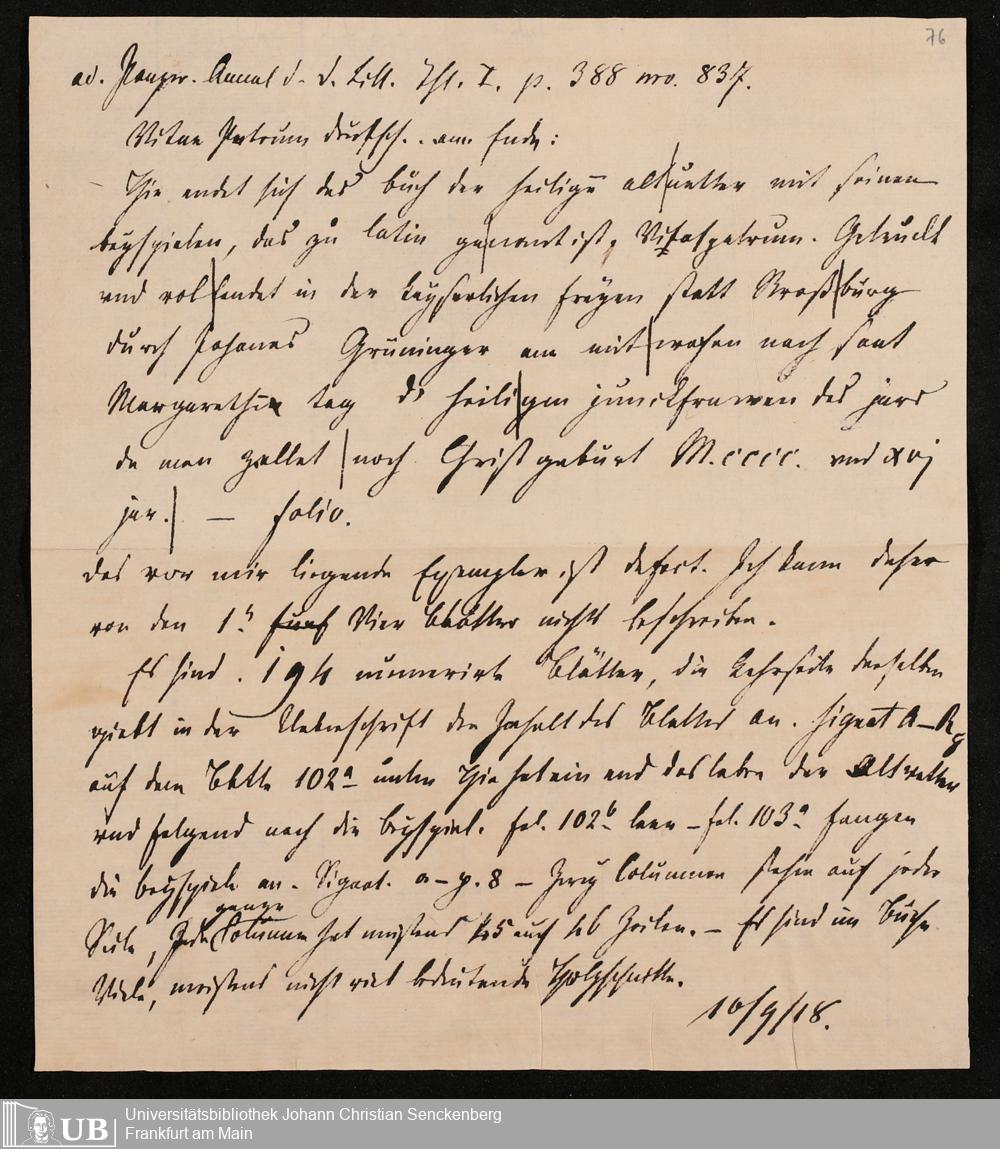 76
ad. Panzer. Annal d. d. Litt. Thl. I. p. 388 nro. 837.
Vitae Patrum deutsch. . am Ende:
Hie endet sich das buch der heilige͞ alt|uetter mit seinen
beyspielen, das zu latin ge|nant ist, Vitaspatrum. Getruckt
und vol|lendet in der keyserlichen freyen statt Straß|burg
durch Johanes Grüninger am mit|wochen nach sant
Margarethen tag d' heili|gen junckfrawen des jars
da man zallet | noch Christ geburt M.cccc. und xvj
jar. | — folio.
Das vor mir liegende Exemplar ist defect. Ich kann daher
von den 1n fünf Vier Blätter nichts beschreiben.
Es sind . 194 numerirte Blätter, die Kehrseite derselben
giebt in der Ueberschrift den Inhalt des Blattes an. Signat A–R
auf dem Blatte 102a unten Hie hat ein end das leben der Altvetter
und folgend nach die beyspiel. fol. 102b leer – fol. 103a fangen
die beyspiele an – Signat. a – p. 8 – Zwey Columnen stehen auf jeder
Seite, Jede ganze Columne hat meistens 45 auch 46 Zeilen. – Es sind im Buche
Viele, meistens nicht viel bedeutende Holzschnitte.
10/9/18.
UB
Universitätsbibliothek Johann Christian Senckenberg
Frankfurt am Main